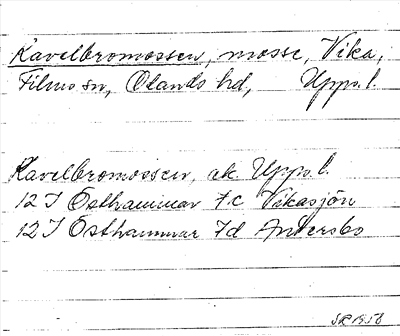 Kavelbromossen, mosse, Vika,
Films sn, Olands hd, Upps. l.
Kavelbromossen, ek Upps. l.
12 I Östhammar 7c Vikasjön
12 I Östhammar 7d Andersbo